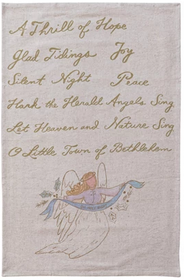 A Thrill of Hope
Glad Tidings Joy
Silent Night Peace
Hark the Herald Angels Sing
Let Heaven and Nature Sing
O Little Town of Bethlehem